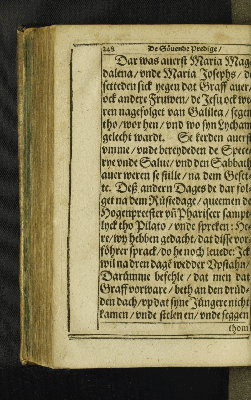 248 De Söuende Predige /
Dar was auerst Maria Mag
dalena / vnde Maria Josephs / de
setteden sick yegen dat Graff auer /
ock andere Fruwen / de Jesu ock we
ren nagefolget van Galilea / segen
tho / wor hen / vnd wo syn Lycham
gelecht wardt. Se kerden auerst
vmme / vnde bereydeden de Spece
rye vnde Salue / vnd den Sabbath
auer weren se stille / na dem Geset
te. Deß andern Dages de dar fol
get na dem Rüstedage / quemen de
Hogenpreester vñ Phariseer sampt
lyck tho Pilato / vnde spreken : He
re / wy hebben gedacht / dat disse vor
föhrer sprack / do he noch leuede : Jck
wil na dren dagē wedder Vpstahn /
Darümme befehle / dat men dat
Graff vorware / beth an den drüd
den dach / vp dat syne Jüngere nicht
kamen / vnde stelen en / vnde seggen
thom